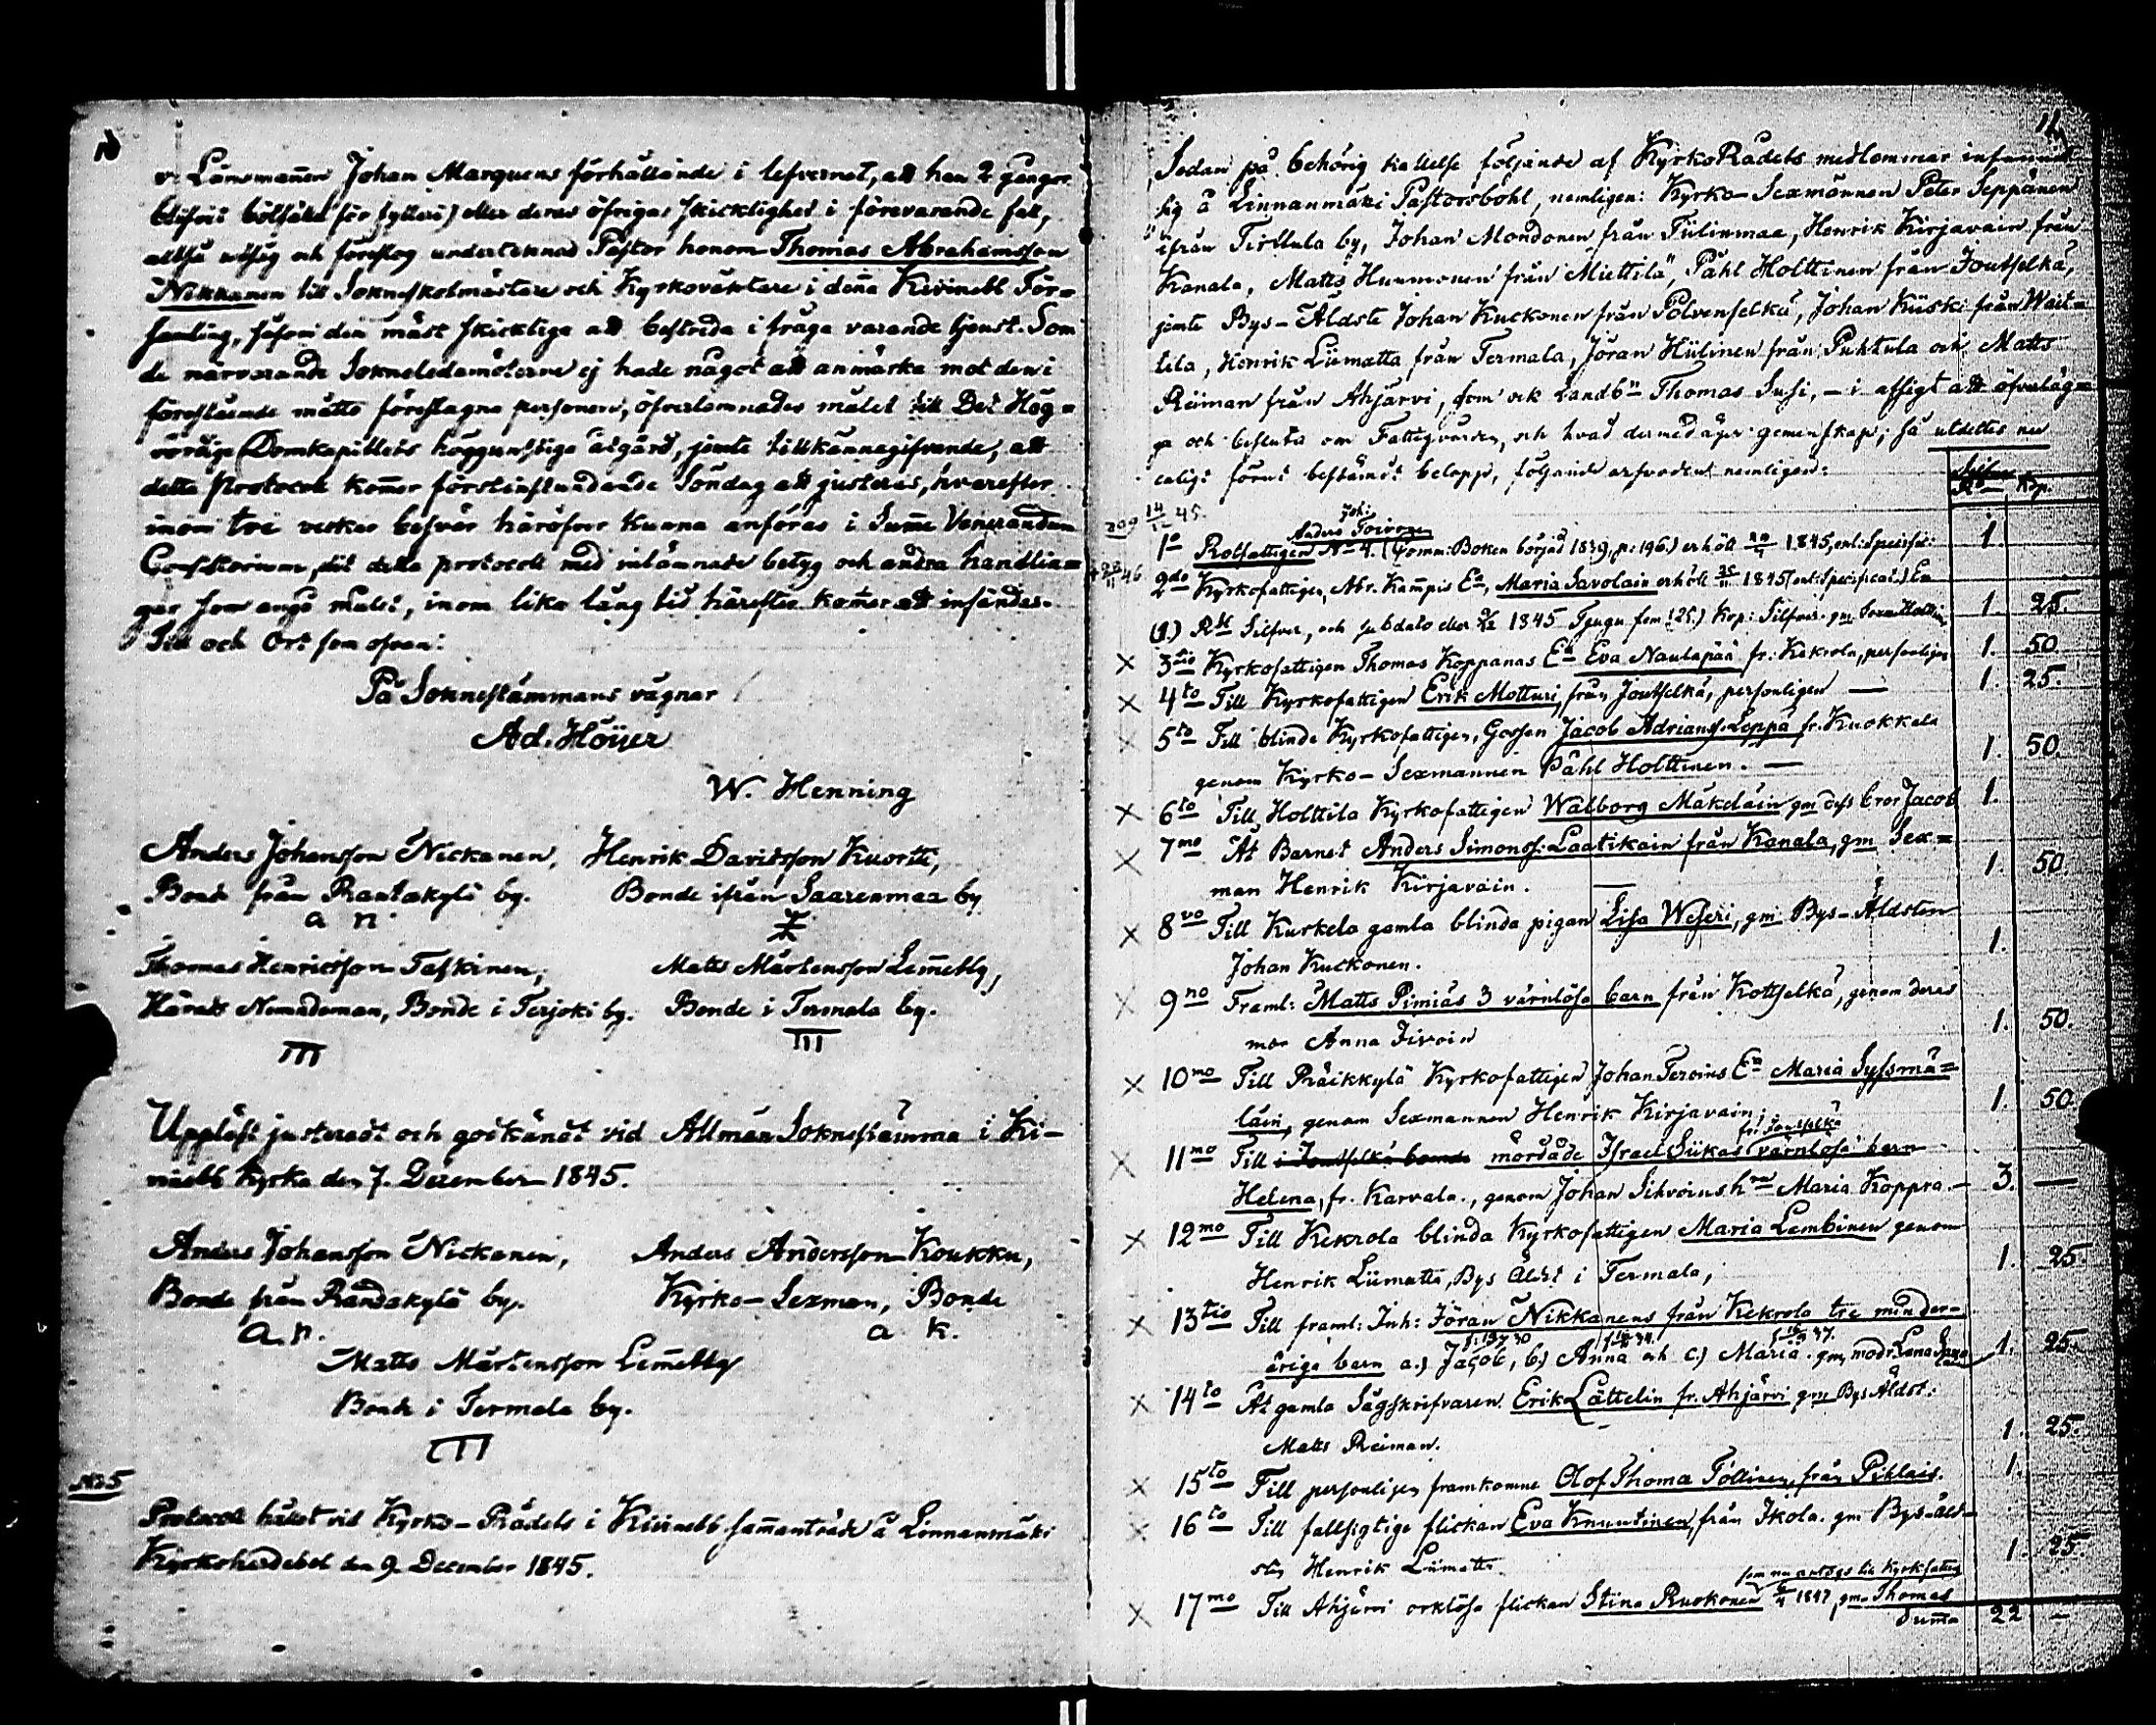 10
v. Länsmannen Johan Marquens förhållande i lefvernet, att han 2 gånger
blifvit bötfäld för fylleri) eller deras öfriga skicklighet i förevarande fall,
alltså utsåg och föreslog undertecknad Pastor honom Thomas Abrahamsson
Nikkanen till Sokneskolmästare och Kyrkoväktare i denna Kivinebb För-
samling, såsom den mäst skickliga att bestrida i fråga varande tjenst. Som
de närvarande Sokneledamöterne ej hade något att anmärka mot den i
föreslående måtto föreslagne personen, öfverlemnades målet till Det Hög-
vördige Domkapitlets höggunstiga åtgärd, jemte tillkännagifvande, att
detta Protocoll kommer förstinstundande Söndag att justeras, hvarefter
inom tre veckor besvär häröfver kunna anföras i Summe Venerandum
Consistorium, dit detta protocoll med inlämnade betyg och andra handlin-
gar som angå målet, inom lika lång tid härefter kommer att insändas.
Tid och Ort som ofvan:
På Soknestämmans vägnar
Ad. Höijer
W. Henning
Anders Johansson Nickanen, Henrik Davidsson Kuortti,
Bonde från Rantakylä by. Bonde ifrån Saarenmaa by
a n
Thomas Henricsson Taskinen, Matts Mårtensson Lemetty,
Härads Nämndeman, Bonde i Terjoki by. Bonde i Termala by.
Uppläst justeradt och godkändt vid Allmän Soknestämma i Ki-
vinebb Kyrka den 7. December 1845.
Anders Johansson Nickanen, Anders Andersson Koukku,
Bonde från Randakylä by. Kyrko-Sexman, Bonde
a. n. a k.
Matts Mårtensson Lemetty
Bonde i Termala by.
No 5
Protocoll hållet vid Kyrko-Rådets i Kivinebb sammanträde å Linnanmäki
Kyrkoherdebol den 9. December 1845.
11
Sedan på behörig kallelse följande af KyrkoRådets medlemmar infunnit
sig å Linnanmäki Pastorsbohl, nemligen: Kyrko-Sexmännen Peter Seppänen
ifrån Tirttula by, Johan Mondonen från Tiilinmaa, Henrik Kirjavain från
Kanala, Matts Hummonen från Miettilä, Påhl Holttinen från Joutselkä,
jemte Bys-Äldste Johan Kuckonen från Polvenselkä, Johan Kiiski från Wait-
tila, Henrik Liimatta från Termala, Jöran Hiilinen från Puhtula och Matts
Reiman från Ahjärvi, som ock Landb:n Thomas Susi, - i afsigt att öfverläg-
ga och besluta om Fattigvården, och hvad dermed äger gemenskap; så utdeltes nu
enligt förut bestämdt belopp, följande arfvoden nemligen:
Silfver
R:l Kop.
14/12 45.
Joh:
Anders Toivonen
1o Rotfattigen N 4. (Comm: Boken börjad 1839, p: 196) erhöll 1845, enl: Specif: 1.
2do Kyrkofattigen, Abr. Kamppis E:a Maria Savolain erhöll 25/11 1845 (enl: Specificat.) En
(1.) R:l Silfver, och sub dato 1845 Tjugu fem (25.) Kop: Silfver gm Sexm: Holttin 1. 25.
3tio Kyrkofattigen Thomas Koppanas E:a Eva Naulapää fr: Kekrola, personligen 1. 50
4to Till Kyrkofattigen Erik Motturi, från Joutselkä, personligen — 1. 25.
5to Till blinde Kyrkofattigen, Gossen Jacob Adrians. Leppä fr. Kuokkala
genom Kyrko-Sexmannen Påhl Holttinen. — 1. 50.
6to Till Holttila Kyrkofattigen Walborg Mäkeläin gm dess bror Jacob 1.
7mo Åt Barnet Anders Simonss: Laatikain från Kanala, gm Sex-
man Henrik Kirjavain. 1. 50.
8vo Till Kurkela gamla blinda pigan Lisa Weseri, gm Bys-Äldsten
Johan Kuckonen. 1.
9no Framl: Matts Pimiäs 3 värnlösa barn från Kottselkä, genom deras
mor Anna Sivoin 1. 50.
10mo Till Räikkylä Kyrkofattigen Johan Tervins E:a Maria Syssmä-
läin, genom Sexmannen Henrik Kirjavain; 1. 50.
fr. Joutselkä
11mo Till i Joutselkä boende mördade Israel Siikas värnlösa barn
Helena, fr. Karvala., genom Johan Sihvoins h:ru Maria Koppra. — 3. —
12mo Till Kekrola blinda Kyrkofattigen Maria Lembinen genom
Henrik Liimatta, Bys Äldst i Termala, 1. 25
13tio Till framl: Inh: Jöran Nikkanens från Kekrola tre minder-
åriga barn a.) Jacob, b.) Anna och c.) Maria. gm modr. Lena 1. 25.
14to Åt gamla Sågskrifvaren Erik Lättelin fr. Ahjärvi gm Bys Äldst:
Matts Reiman. 1. 25.
15to Till personligen framkomne Olof Thoma Töllinen, från Pihlais. 1.
16to Till fallsigtige flickan Eva Knuutinen, från Ikola. gm Bys-äld-
sten Henrik Liimatta. 1. 25.
som nu antogs till Kyrkfattig
17mo Till Ahjärvi orklösa flickan Stina Ruokonen 1847, gm Thomas
Summa 22 —